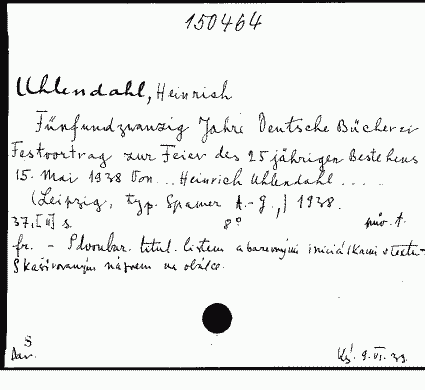 150464
Uhlendahl, Heinrich
Fünfundzwanzig Jahre Deutsche Bücherei
Festvortrag zur Feier des 25 jährigen Bestehens
15. Mai 1938 Von... Heinrich Uhlendahl....
(Leipzig, typ. Spamer A.-G.,) 1938.
37, [II] s. 8° pův. t.
fr. - S dvoubar. titul. listem a barevnými iniciálkami v textu-
S kašírovaným názvem na obálce.
S
Dar.
9. VI. 39.